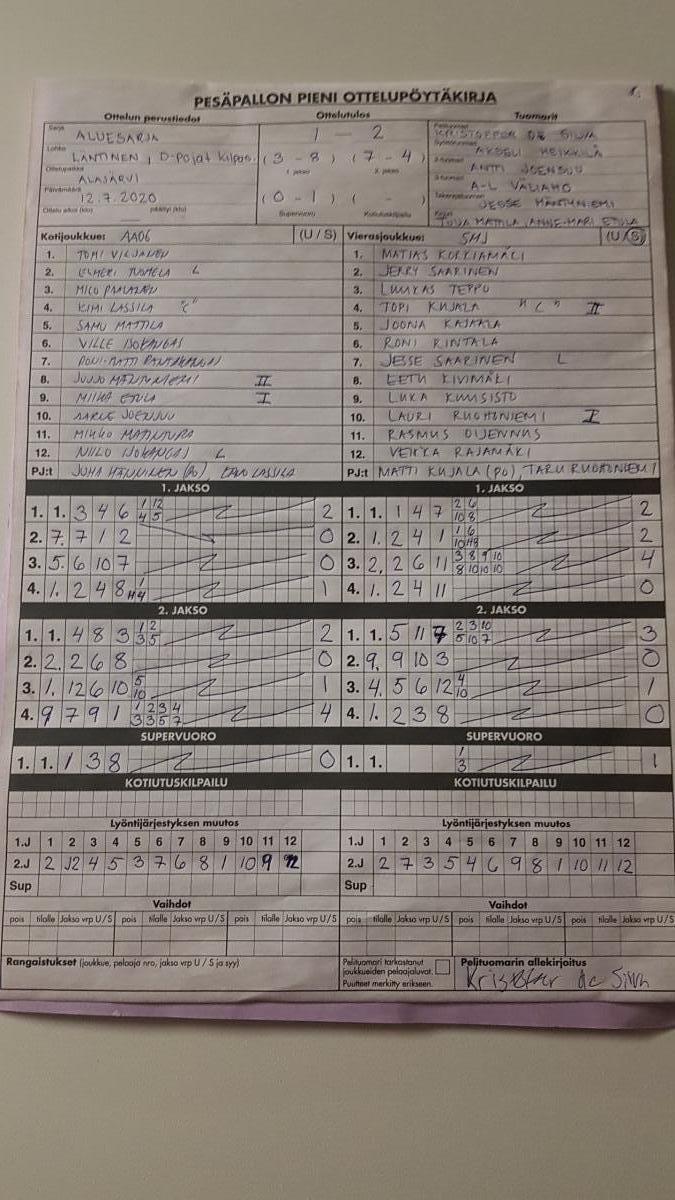 1.
PESÄPALLON PIENI OTTELUPÖYTÄKIRJA
Ottelun perustiedot Ottelutulos Tuomarit
Sarja ALUESARJA 1 - 2 KRISTOFFER DE SILVA
Lohko LÄNTINEN, D-pojat kilpas. (3 - 8) (7 - 4) AKSELI HEIKKILÄ
1. jakso 2. jakso
Ottelupaikka ALAJÄRVI ANTTI JOENSUU
Päivämäärä 12.7.2020 (0 - 1) ( - ) A-L VÄLIAHO
Ottelu alkoi (klo) päättyi (klo) Supervuoro Kotiutuskilpailu JESSE MÄNTYNIEMI
Kirjuri TOIJA MATTILA, ANNE-MARI ETULA
Kotijoukkue: AA06 (U / S) Vierasjoukkue: SMJ (U / S)
1. TOMI VILJANEN 1. MATIAS KORKIAMÄKI
2. ELMERI TUOMELA L 2. JERRY SAARINEN
3. MICO 3. LUUKAS TEPPO
4. KIMI LASSILA "C" 4. TOPI KUJALA "C" II
5. SAMU MATTILA 5. JOONA KAJAALA
6. VILLE ISOKANGAS 6. RONI RINTALA
7. 7. JESSE SAARINEN L
8. JUUSO MÄNTYNIEMI II 8. EETU KIVIMÄKI
9. MIIKA ETULA I 9. LUKA KUUSISTO
10. AARLE JOENSUU 10. LAURI RUOHONIEMI I
11. MIKKO 11. RASMUS OIJENNUS
12. NIILO ISOKANGAS L 12. VEIKKA RAJAMÄKI
PJ:t JUHA HÄNNINEN (PO) EERO LASSILA PJ:t MATTI KUJALA (PO), TARU RUOHONIEMI
1. JAKSO 1. JAKSO
1. 1. 3 4 6 1 12 2 1. 1. 1 4 7 2 6 2
4 5 10 8
2. 7. 7 1 2 0 2. 1. 2 4 1 1 6 2
3. 5. 6 10 7 0 3. 2. 2 6 11 3 8 9 10 4
8 10 10 10
4. 1. 2 4 8 1 4. 1. 2 4 11 0
2. JAKSO 2. JAKSO
1. 1. 4 8 3 1 2 2 1. 1. 5 11 7 2 3 10 3
3 5 5 10 7
2. 2. 2 6 8 0 2. 9. 9 10 3 0
3. 1. 12 6 10 5 1 3. 4. 5 6 12 4 1
10 10
4. 9 7 9 1 1 2 3 4 4 4. 1. 2 3 8 0
3 3 5 7
SUPERVUORO SUPERVUORO
1. 1. 1 3 8 0 1. 1. 1 1
3
KOTIUTUSKILPAILU KOTIUTUSKILPAILU
Lyöntijärjestyksen muutos Lyöntijärjestyksen muutos
1.J 1 2 3 4 5 6 7 8 9 10 11 12 1.J 1 2 3 4 5 6 7 8 9 10 11 12
2.J 2 12 4 5 3 7 6 8 1 10 9 2.J 2 7 3 5 4 6 9 8 1 10 11 12
Sup Sup
Vaihdot Vaihdot
pois tilalle Jakso vrp U/S pois tilalle Jakso vrp U/S pois tilalle Jakso vrp U/S pois tilalle Jakso vrp U/S pois tilalle Jakso vrp U/S pois tilalle Jakso vrp U/S
Rangaistukset (joukkue, pelaaja nro, jakso vrp U / S ja syy) Pelituomari tarkastanut Pelituomarin allekirjoitus
joukkueiden pelaajaluvat. Kristoffer de Silva
Puutteet merkitty erikseen.